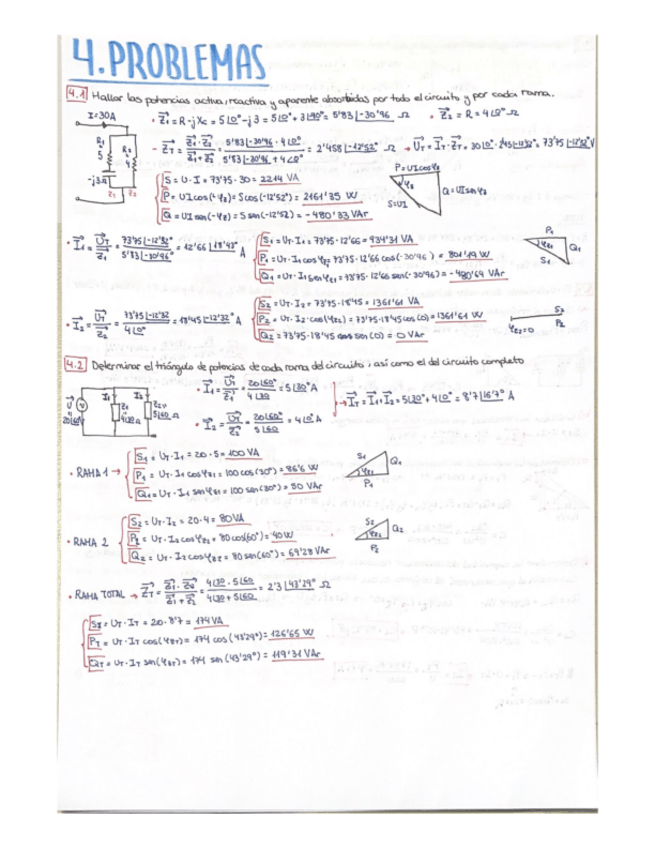 4. PROBLEMAS
4.1 Hallar las potencias activa, reactiva y aparente absorbidas por todo el circuito y por cada rama.
I=30A
R1 5
R2 4
-j3Ω
Z1 Z2
• Z1 = R - jXc = 5∠0° - j3 = 5∠0° + 3∠90° = 5'83∠-30'96 Ω • Z2 = R = 4∠0° Ω
- ZT = Z1 · Z2 / Z1 + Z2 = 5'83∠-30'96 · 4∠0° / 5'83∠-30'96 + 4∠0° = 2'458∠-12'52° Ω → UT = IT · ZT = 30∠0° · 2'45∠-12'32 = 73'75∠-12'32° V
S = U · I = 73'75 · 30 = 2214 VA
P = UI cos(φz) = S cos(-12'52) = 2161'35 W
Q = UI sen(φz) = S sen(-12'52) = -480'83 VAr
P=UI cosφz
φz
S=UI
Q=UI senφz
• I1 = UT / Z1 = 73'75∠-12'32° / 5'83∠-30'96° = 12'66∠18'43° A
S1 = UT · I1 = 73'75 · 12'66 = 934'31 VA
P1 = UT · I1 cosφz1 = 73'75 · 12'66 cos(-30'96) = 801'19 W
Q1 = UT · I1 senφz1 = 73'75 · 12'66 sen(-30'96) = -480'64 VAr
P1
φz1 Q1
S1
• I2 = UT / Z2 = 73'75∠-12'32 / 4∠0° = 18'45∠-12'32° A
S2 = UT · I2 = 73'75 · 18'45 = 1361'61 VA
P2 = UT · I2 · cos(φz2) = 73'75 · 18'45 cos(0) = 1361'61 W
Q2 = 73'75 · 18'45 sen(0) = 0 VAr
S2
φz2=0 P2
4.2 Determinar el triángulo de potencias de cada rama del circuito, así como el del circuito completo
U
20∠60°
I1 I2
Z1 4∠30 Ω
Z2 5∠60 Ω
• I1 = UT / Z1 = 20∠60° / 4∠30 = 5∠30° A
→ IT = I1 + I2 = 5∠30° + 4∠0° = 8'7∠16'7° A
• I2 = UT / Z2 = 20∠60° / 5∠60 = 4∠0° A
• RAMA 1 →
S1 = UT · I1 = 20 · 5 = 100 VA
P1 = UT · I1 cosφz1 = 100 cos(30°) = 86'6 W
Q1 = UT · I1 senφz1 = 100 sen(30°) = 50 VAr
S1 Q1
φz1
P1
• RAMA 2
S2 = UT · I2 = 20 · 4 = 80 VA
P2 = UT · I2 cosφz2 = 80 cos(60°) = 40 W
Q2 = UT · I2 cosφz2 = 80 sen(60°) = 69'28 VAr
S2 Q2
φz2
P2
• RAMA TOTAL → ZT = Z1 · Z2 / Z1 + Z2 = 4∠30 · 5∠60 / 4∠30 + 5∠60 = 2'3∠43'29° Ω
ST = UT · IT = 20 · 8'7 = 174 VA
PT = UT · IT cos(φzT) = 174 cos(43'29°) = 126'65 W
QT = UT · IT sen(φzT) = 174 sen(43'29°) = 119'31 VAr